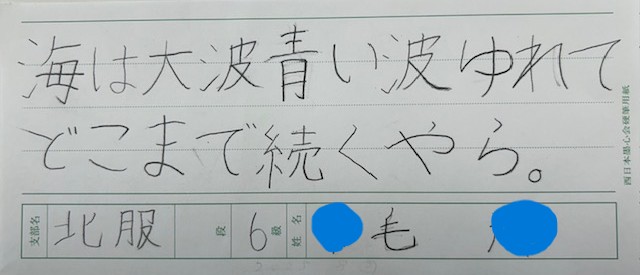 海は大波青い波ゆれて
どこまで続くやら。
支部名 北服 段 6級 姓名 毛
西日本墨心会硬筆用紙